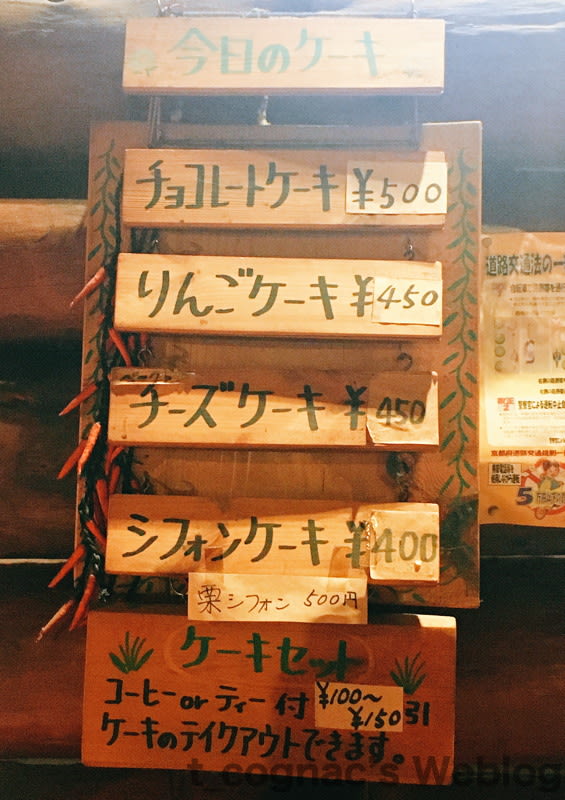 今日のケーキ
チョコレートケーキ ¥500
りんごケーキ ¥450
ベークド
チーズケーキ ¥450
シフォンケーキ ¥400
栗シフォン 500円
ケーキセット
コーヒー or ティー付 ¥100〜¥150引
ケーキのテイクアウトできます。
道路交通法の一
5万円以下の
t_cognac's Weblog